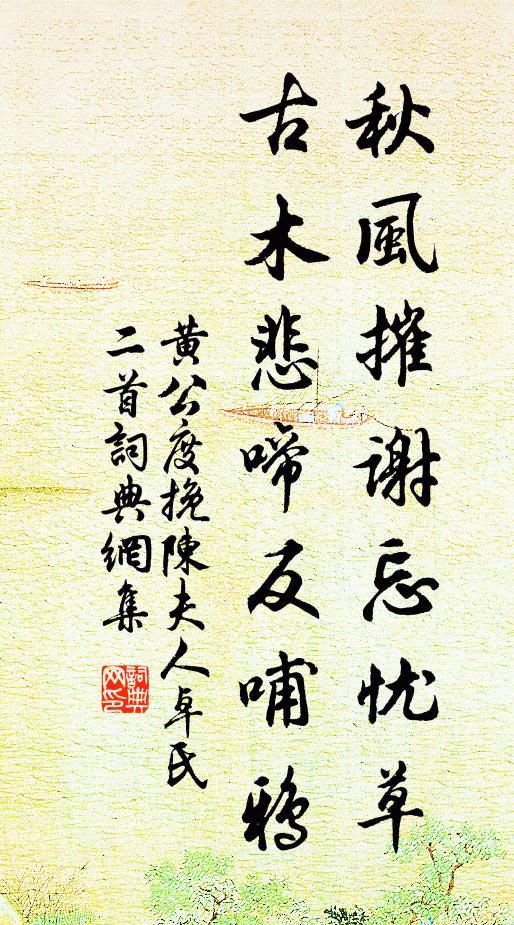 秋風摧謝忘忧草
古木悲啼反哺鴉
黄公度挽陳夫人卓氏
二首詞典網集
詞典
网印